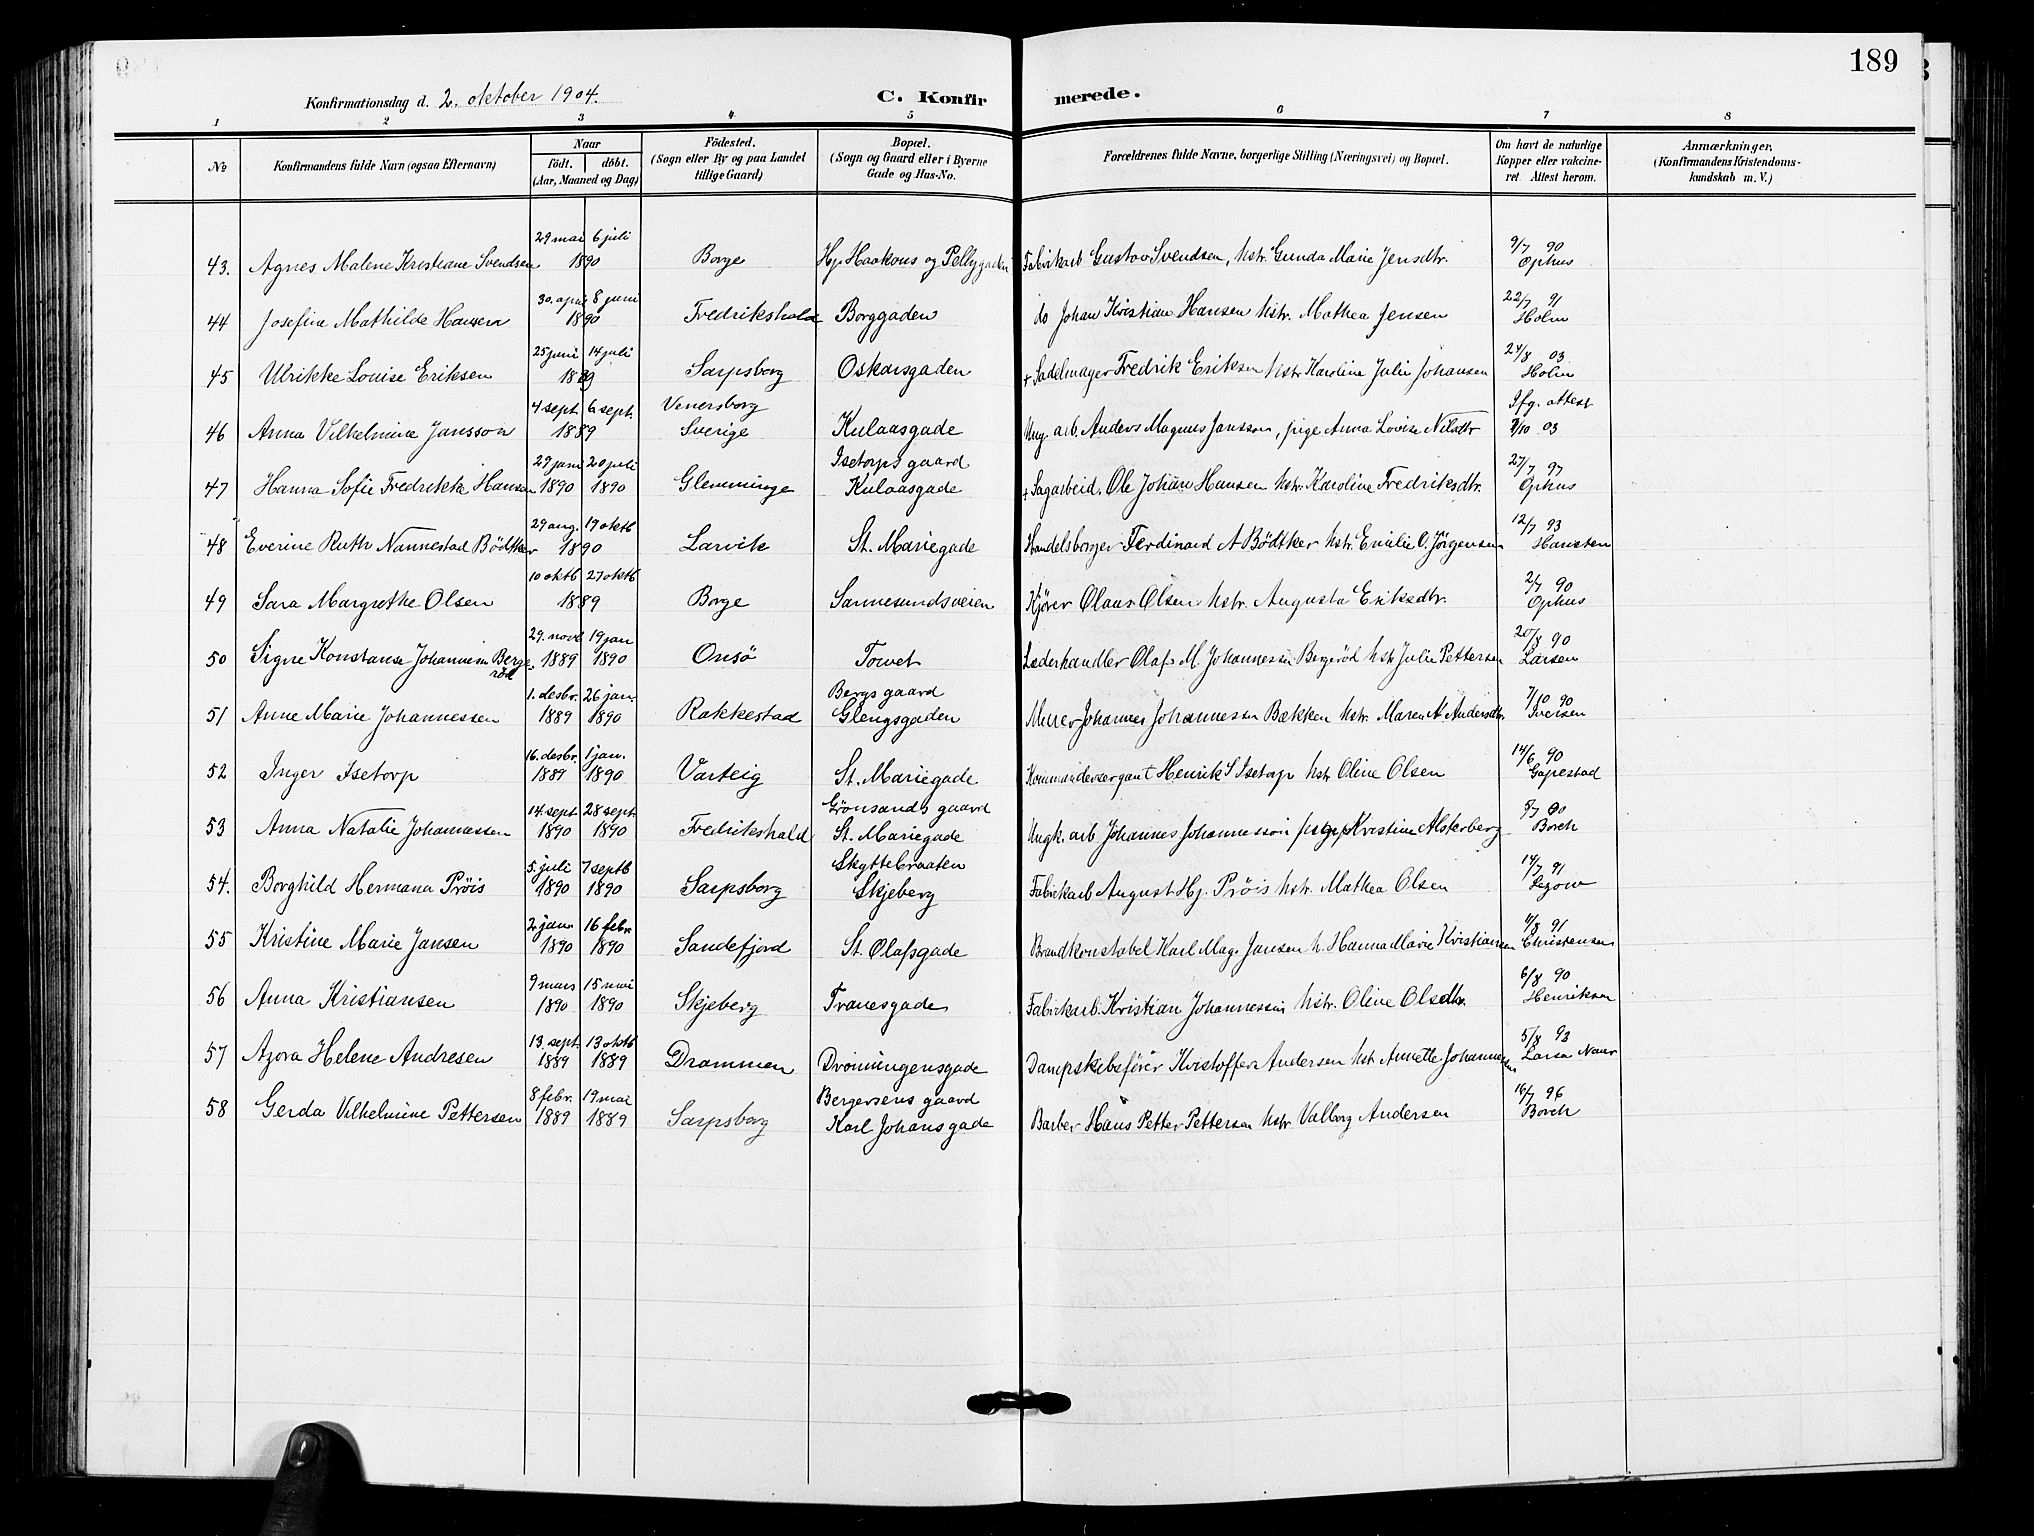 189
Konfirmationsdag d. 2. oktober 1904.
C. Konfir merede.
1 2 3 4 5 6 7 8
№ Konfirmandens fulde Navn (ogsaa Efternavn) Naar födt. döbt. (Aar, Maaned og Dag) Födested. (Sogn eller By og paa Landet tillige Gaard) Bopæl. (Sogn og Gaard eller i Byerne Gade og Hus-No. Forældrenes fulde Navne, borgerlige Stilling (Næringsvei) og Bopæl. Om havt de naturlige Kopper eller vakcineret. Attest herom. Anmærkninger, (Konfirmandens Kristendomskundskab m. V.)
29 mai 6 juli 9/7 90
43. Agnes Malene Kristiane Svendsen 1890 Borge Hj. Haakons og Pellygaden Fabrikarb Gustav Svendsen, hstr. Gunda Marie Jensdtr. Ophus
30. april 8 juni 22/7 91
44 Josefine Mathilde Hansen 1890 Fredrikshald Borggaden do Johan Kristian Hansen hstr. Mathea Jensen Holm
25 juni 14 juli 24/8 03
45 Ulrikke Louise Eriksen 1889 Sarpsborg Oskarsgaden + Sadelmager Fredrik Eriksen hstr Karoline Julie Johansen Holm
4 sept. 6 sept. Venersborg Ifg. attest
46 Anna Vilhelmine Jansson 1889 Sverige Kulaasgade Ung. arb. Anders Magnus Jansson, pige Anna Lovise Nilsdtr /10 03
29 juni 20 juli Isetorps gaard 27/7 97
47 Hanna Sofie Fredrikke Hansen 1890 1890 Glemminge Kulaasgade + Sagarbeid. Ole Johan Hansen hstr. Karoline Fredriksdtr. Ophus
29 aug. 19 oktb 12/7 93
48 Everine Ruth Nannestad Bödtker 1890 Larvik St. Mariegade Handelsborger Ferdinand A Bödtker hstr. Emilie O. Jörgensen Hansten
10 oktb 27 oktb 2/7 90
49 Sara Margrethe Olsen 1889 Borge Sannesundsveien Kjører Olaus Olsen hstr. Augusta Eriksdtr. Ophus
29. novb 19 jan 20/8 90
50 Signe Konstanse Johannesen Bergeröd 1889 1890 Onsö Torvet Læderhandler Olaf M. Johannessen Bergeröd hstr Julie Pettersen Larsen
1. desbr. 26 jan. Bergs gaard 7/10 90
51 Anne Marie Johannessen 1889 1890 Rakkestad Glengsgaden Murer Johannes Johannessen Bækken hstr. Maren A. Andersdtr. Iversen
16. desbr. 1 jan. 14/6 90
52 Inger Isetorp 1889 1890 Varteig St. Mariegade Kommandersergant Henrik S Isetorp hstr Oline Olsen Gapestad
14. sept. 28 sept. Grönsands gaard
53 Anna Natalie Johannessen 1890 1890 Fredrikshald St. Mariegade Ungk. arb Johannes Johannesson Kristine Alsterberg Borch
5. juli 7 septb Skyttebraaten 14/7 91
54. Borghild Hermana Pröis 1890 1890 Sarpsborg Skjeberg Fabrikarb August Hj. Pröis hstr. Mathea Olsen
2 jan. 16 febr. 11/8 91
55 Kristine Marie Jansen 1890 1890 Sandefjord St. Olafsgade Brandkonstabel Karl Mag. Jansen h. Hanna Marie Kristiansen Christensen
9 mars 15 mai 6/8 90
56 Anna Kristiansen 1890 1890 Skjeberg Tranesgade Fabrikarb. Kristian Johannessen hstr. Oline Olsdtr. Henriksen
13. sept. 13 oktb 5/8 93
57 Azora Helene Andresen 1889 1889 Drammen Dronningensgade Dampskibsfører Kristoffer Andersen hstr Annette Johannessen
8 febr. 19 mai Bergersens gaard 16/7 96
58 Gerda Vilhelmine Pettersen 1889 1889 Sarpsborg Karl Johansgade Barber Hans Petter Pettersen hstr Valborg Andersen Borch